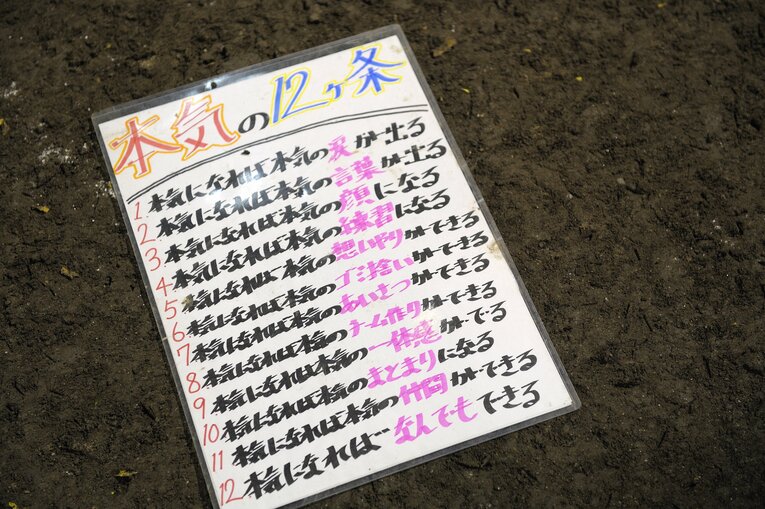 本気の12ヶ条
1.本気になれば本気の涙が出る
2.本気になれば本気の言葉が出る
3.本気になれば本気の顔になる
4.本気になれば本気の練習になる
5 本気になれば本気の想いやりができる
6 本気になれば本気のゴミ拾いができる
7 本気になれば本気のあいさつができる
8 本気になれば本気のチーム作りができる
9 本気になれば本気の一体感がでる
10 本気になれば本気のまとまりになる
11 本気になれば本気の仲間ができる
12 本気になれば…なんでもできる